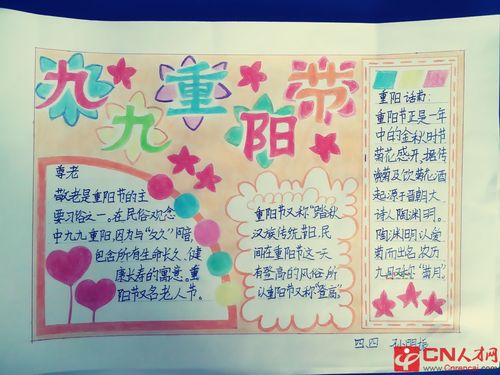 九九重阳节
尊老
敬老是重阳节的主
要习俗之一。在民俗观念
中九九重阳,因为与"久久"同音,
包含所有生命长久、健
康长寿的寓意。重
阳节又名老人节。
重阳节又称"踏秋"
汉族传统节日,民
间在重阳节这一天
有登高的风俗,所
以重阳节又称"登高"。
重阳话菊:
重阳节正是一年
中的金秋时节
菊花盛开,据传
赏菊及饮菊花酒
起源于晋朝大
诗人陶渊明。
陶渊明认爱
菊而出名,农历
九月又称"菊月"。
四、四
CN人才网
Cnrencai.com